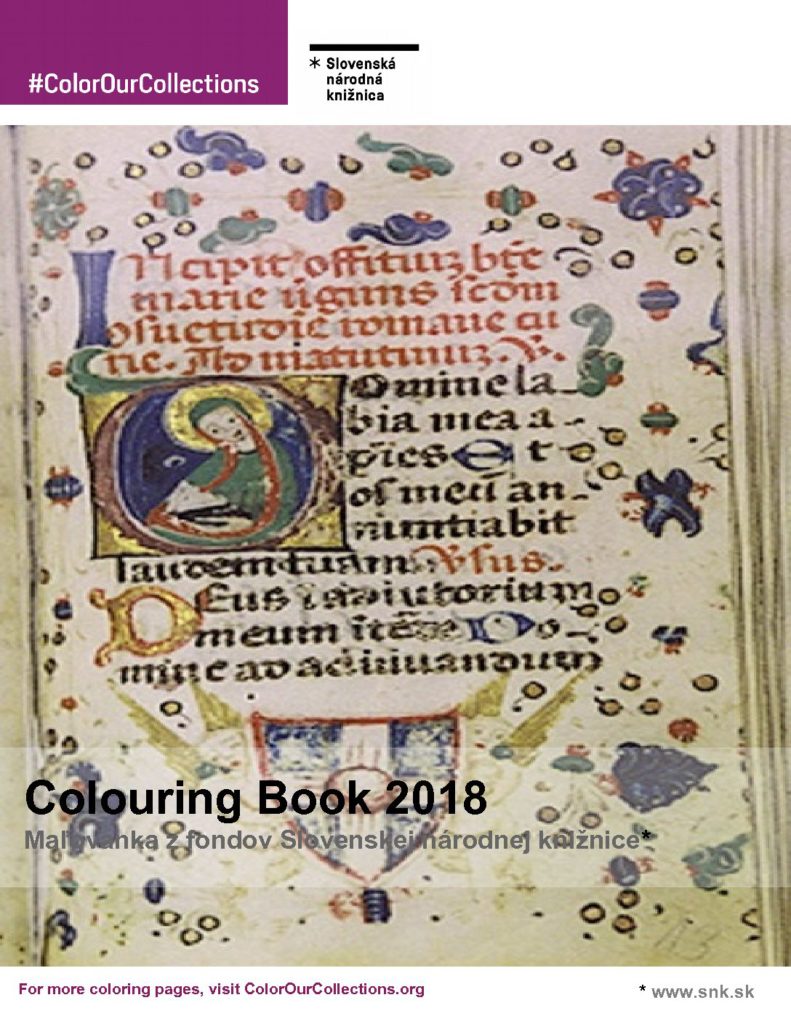 #ColorOurCollections
* Slovenská
národná
knižnica
INcipit offitiuʒ bt̃e
marie ṽginis s̃cdm
ɔsuetudiẽ romane cu
rie. Ad matutinuʒ. ℣.
Domine la
bia mea a-
p̃ies et
os meũ an-
nuntiabit
laudem tuam. V̓sus.
Deus in adiutorium
meum Do-
mine ad adiuuandum
Colouring Book 2018
Maľovanka z fondov Slovenskej národnej knižnice*
For more coloring pages, visit ColorOurCollections.org
* www.snk.sk